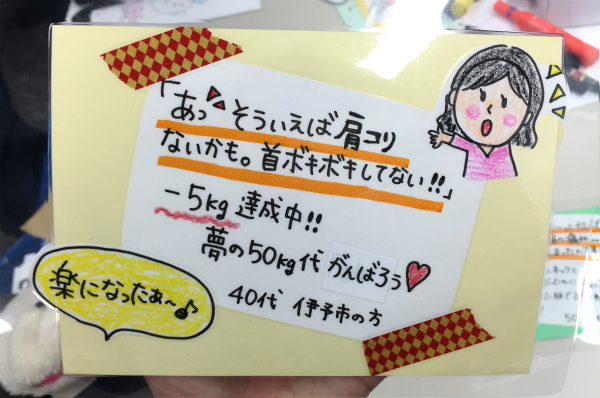 「あっ そういえば肩コリ
ないかも。首ボキボキしてない!!」
-5kg 達成中!!
夢の50kg代 がんばろう
40代 伊予市の方
楽になったぁ〜♪